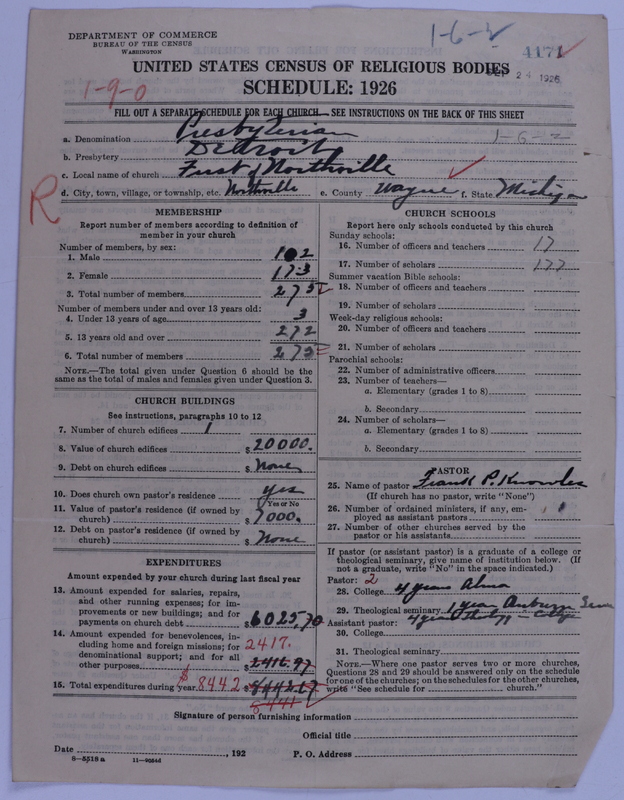 DEPARTMENT OF COMMERCE
BUREAU OF THE CENSUS
WASHINGTON
1-6-2
4171
UNITED STATES CENSUS OF RELIGIOUS BODIES
24 1926
SCHEDULE: 1926
1-9-0
FILL OUT A SEPARATE SCHEDULE FOR EACH CHURCH. SEE INSTRUCTIONS ON THE BACK OF THIS SHEET
a. Denomination Presbyterian 1-6-2
b. Presbytery Detroit
c. Local name of church First of Northville
d. City, town, village, or township, etc. Northville e. County Wayne f. State Michigan
R
MEMBERSHIP
Report number of members according to definition of
member in your church
Number of members, by sex:
1. Male 102
2. Female 173
3. Total number of members 275
Number of members under and over 13 years old:
4. Under 13 years of age 3
5. 13 years old and over 272
6. Total number of members 275
NOTE.—The total given under Question 6 should be the
same as the total of males and females given under Question 3.
CHURCH BUILDINGS
See instructions, paragraphs 10 to 12
7. Number of church edifices 1
8. Value of church edifices $20000.
9. Debt on church edifices $ None
10. Does church own pastor's residence yes
Yes or No
11. Value of pastor's residence (if owned by
church) $7000.
12. Debt on pastor's residence (if owned by
church) $ None
EXPENDITURES
Amount expended by your church during last fiscal year
13. Amount expended for salaries, repairs,
and other running expenses; for im-
provements or new buildings; and for
payments on church debt $6025,70
14. Amount expended for benevolences, in-
cluding home and foreign missions; for
denominational support; and for all
other purposes 2417. $2416.97
15. Total expenditures during year $8442 $8442.67
8441
CHURCH SCHOOLS
Report here only schools conducted by this church
Sunday schools:
16. Number of officers and teachers 17
17. Number of scholars 177
Summer vacation Bible schools:
18. Number of officers and teachers
19. Number of scholars
Week-day religious schools:
20. Number of officers and teachers
21. Number of scholars
Parochial schools:
22. Number of administrative officers
23. Number of teachers—
a. Elementary (grades 1 to 8)
b. Secondary
24. Number of scholars—
a. Elementary (grades 1 to 8)
b. Secondary
PASTOR
25. Name of pastor Frank P. Knowles
(If church has no pastor, write "None")
26. Number of ordained ministers, if any, em-
ployed as assistant pastors
27. Number of other churches served by the
pastor or his assistants
If pastor (or assistant pastor) is a graduate of a college or
theological seminary, give name of institution below. (If
not a graduate, write "No" in the space indicated.)
Pastor: 2
28. College 4 years Alma
29. Theological seminary 1 year Auburn
Assistant pastor: 4 years
30. College
31. Theological seminary
NOTE.—Where one pastor serves two or more churches,
Questions 28 and 29 should be answered only on the schedule
for one of the churches; on the schedules for the other churches,
write "See schedule for church."
Signature of person furnishing information
Official title
Date , 192 P. O. Address
8-5518 a